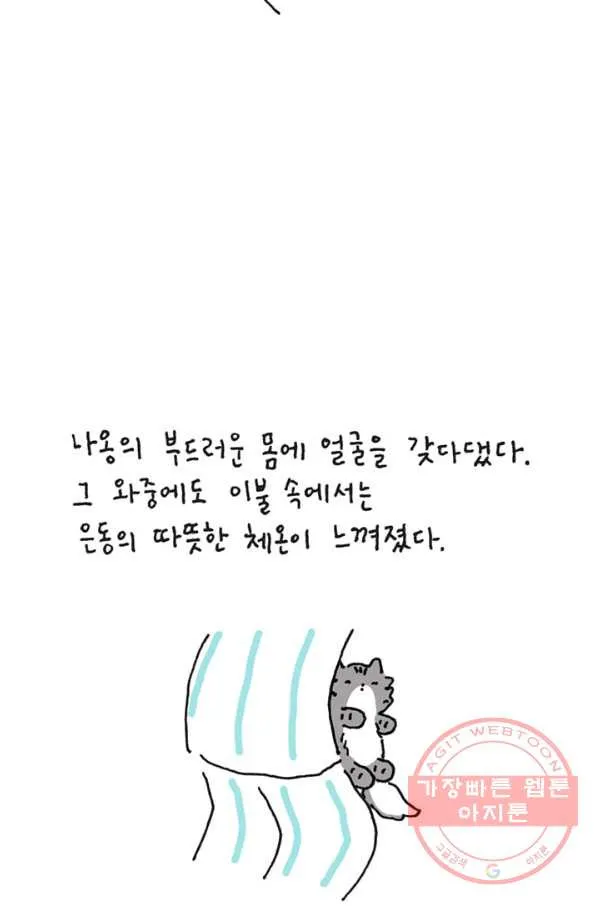 나옹의 부드러운 몸에 얼굴을 갖다댔다.
그 와중에도 이불 속에서는
은동의 따뜻한 체온이 느껴졌다.
AGIT WEBTOON
가장빠른 웹툰
아지툰
구글검색 G 아지툰